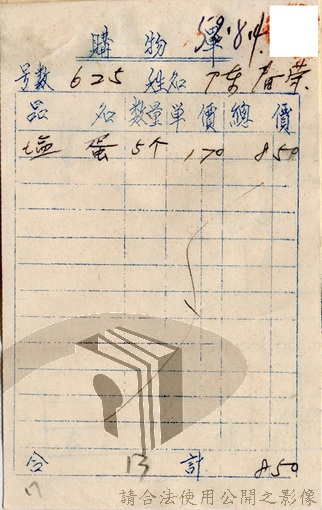 購物單 59.8.14.
号數 625 姓名 陳春荣
品名 数量 单價 總價
塩蛋 5个 170 850
合 13 計 850
17
請合法使用公開之影像